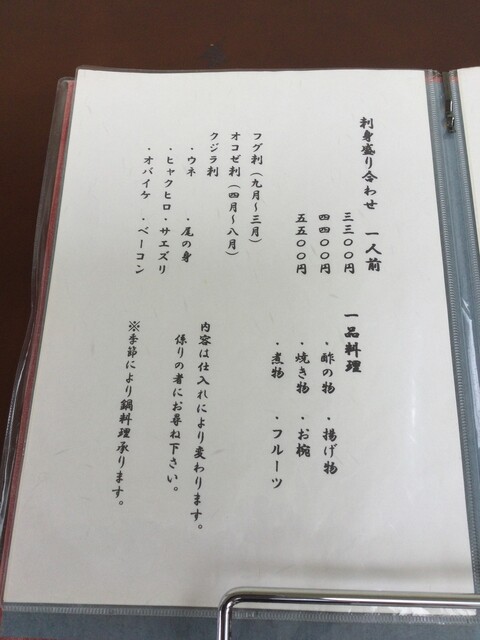 刺身盛り合わせ 一人前
三三〇〇円
四四〇〇円
五五〇〇円
フグ刺(九月〜三月)
オコゼ刺(四月〜八月)
クジラ刺
・ウネ ・尾の身
・ヒャクヒロ ・サエズリ
・オバイケ ・ベーコン
一品料理
・酢の物 ・揚げ物
・焼き物 ・お椀
・煮物 ・フルーツ
内容は仕入れにより変わります。
係りの者にお尋ね下さい。
※季節により鍋料理承ります。